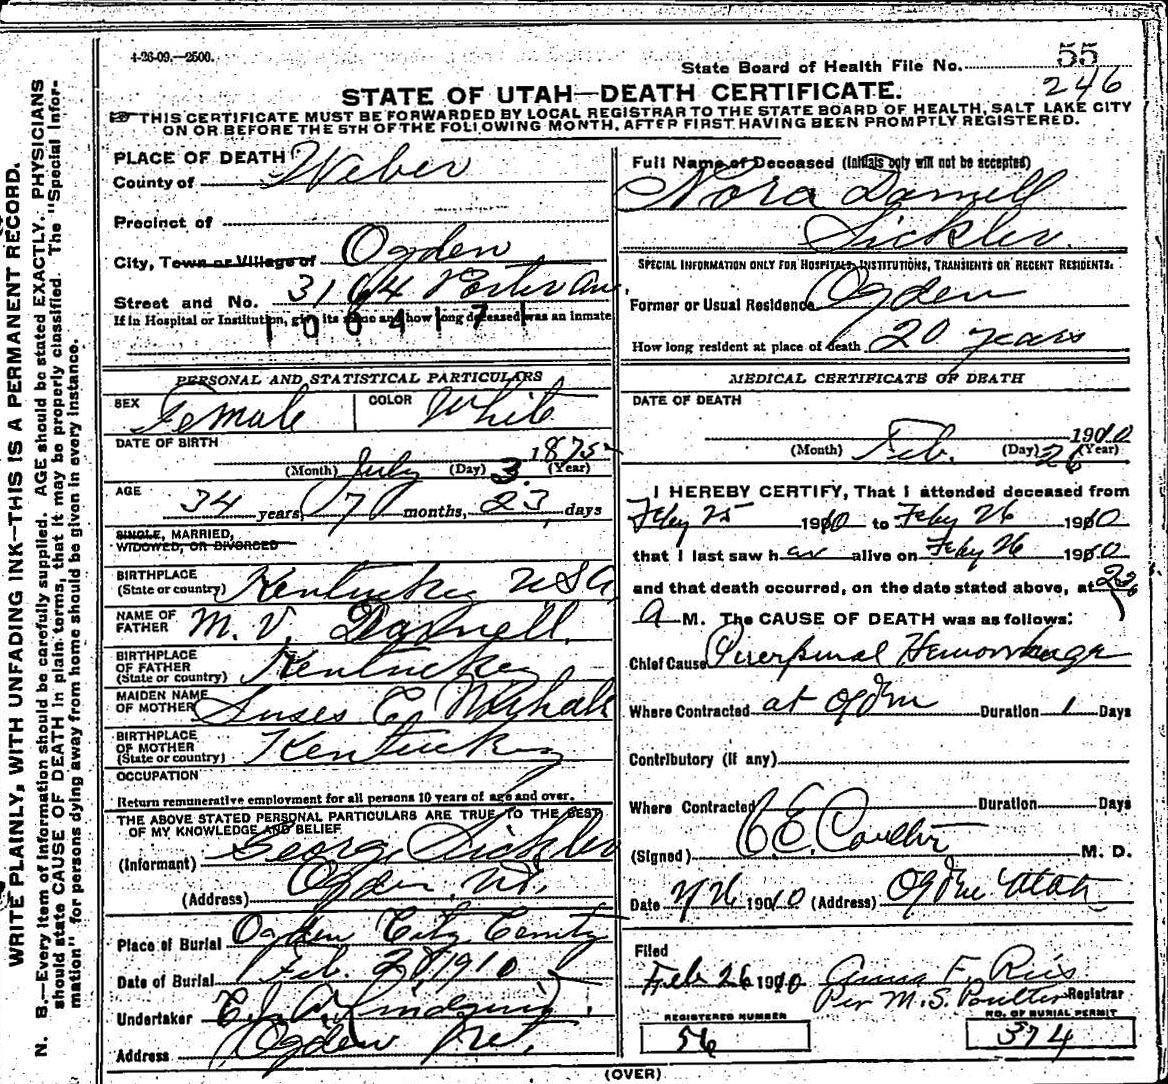 4-26-09.—2500.
State Board of Health File No. 55
246
STATE OF UTAH—DEATH CERTIFICATE.
THIS CERTIFICATE MUST BE FORWARDED BY LOCAL REGISTRAR TO THE STATE BOARD OF HEALTH, SALT LAKE CITY
ON OR BEFORE THE 5TH OF THE FOLLOWING MONTH, AFTER FIRST HAVING BEEN PROMPTLY REGISTERED.
WRITE PLAINLY, WITH UNFADING INK—THIS IS A PERMANENT RECORD.
N. B.—Every item of information should be carefully supplied. AGE should be stated EXACTLY. PHYSICIANS
should state CAUSE OF DEATH in plain terms, that it may be properly classified. The "Special Infor-
mation" for persons dying away from home should be given in every instance.
PLACE OF DEATH
County of Weber
Precinct of
City, Town or Village of Ogden
Street and No. 3164 Porter Ave.
If in Hospital or Institution, give its name and how long deceased was an inmate
1004171
PERSONAL AND STATISTICAL PARTICULARS
SEX Female COLOR White
DATE OF BIRTH
(Month) July (Day) 3 1875 (Year)
AGE 34 years, 7 months, 23 days
SINGLE, MARRIED,
WIDOWED, OR DIVORCED
BIRTHPLACE
(State or country) Kentucky USA
NAME OF
FATHER M. V. Darnell
BIRTHPLACE
OF FATHER
(State or country) Kentucky
MAIDEN NAME
OF MOTHER Suses C.
BIRTHPLACE
OF MOTHER
(State or country) Kentucky
OCCUPATION
Return remunerative employment for all persons 10 years of age and over.
THE ABOVE STATED PERSONAL PARTICULARS ARE TRUE TO THE BEST
OF MY KNOWLEDGE AND BELIEF
(Informant) George Sickler
(Address) Ogden, Ut.
Place of Burial Ogden City Cemity
Date of Burial Feb. 28 1910
Undertaker
Address Ogden
Full Name of Deceased (Initials only will not be accepted)
Nora Darnell
Sickler.
SPECIAL INFORMATION ONLY FOR HOSPITALS, INSTITUTIONS, TRANSIENTS OR RECENT RESIDENTS.
Former or Usual Residence Ogden
How long resident at place of death 20 years
MEDICAL CERTIFICATE OF DEATH
DATE OF DEATH
(Month) Feb. (Day) 26 1910 (Year)
I HEREBY CERTIFY, That I attended deceased from
Feby 25 1910 to Feby 26 1910
that I last saw her alive on Feby 26 1910
and that death occurred, on the date stated above, at
A M. The CAUSE OF DEATH was as follows:
Chief Cause Puerperal Hemorrhage
Where Contracted at Ogden Duration 1 Days
Contributory (if any)
Where Contracted Duration Days
(Signed) C. E. Coulter M. D.
Date 2/26 1910 (Address) Ogden Utah
Filed
Feb 26 1910 Anna F. Ries
Per M. S. Poulter Registrar
REGISTERED NUMBER
56
NO. OF BURIAL PERMIT
374
(OVER)